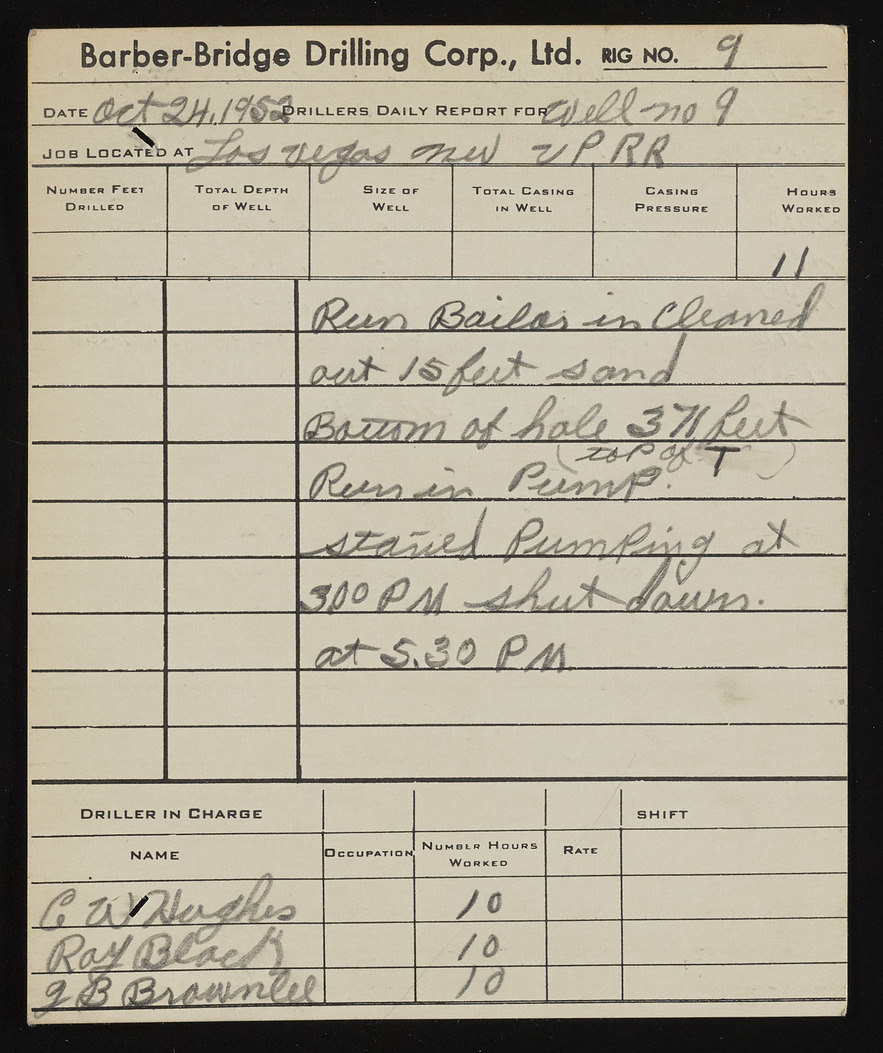 Barber-Bridge Drilling Corp., Ltd. RIG NO. 9
DATE Oct 24, 1952 DRILLERS DAILY REPORT FOR Well no 9
JOB LOCATED AT Las Vegas Nev UP.RR
NUMBER FEET DRILLED TOTAL DEPTH OF WELL SIZE OF WELL TOTAL CASING IN WELL CASING PRESSURE HOURS WORKED
11
Run Bailor in Cleaned
out 15 feet sand
Bottom of hole 371 feet
(top of T )
Run in Pump.
started Pumping at
3,00 PM shut down.
at 5.30 PM
DRILLER IN CHARGE SHIFT
NAME OCCUPATION NUMBER HOURS WORKED RATE
C W Hughes 10
Ray Black 10
J B Brownlee 10